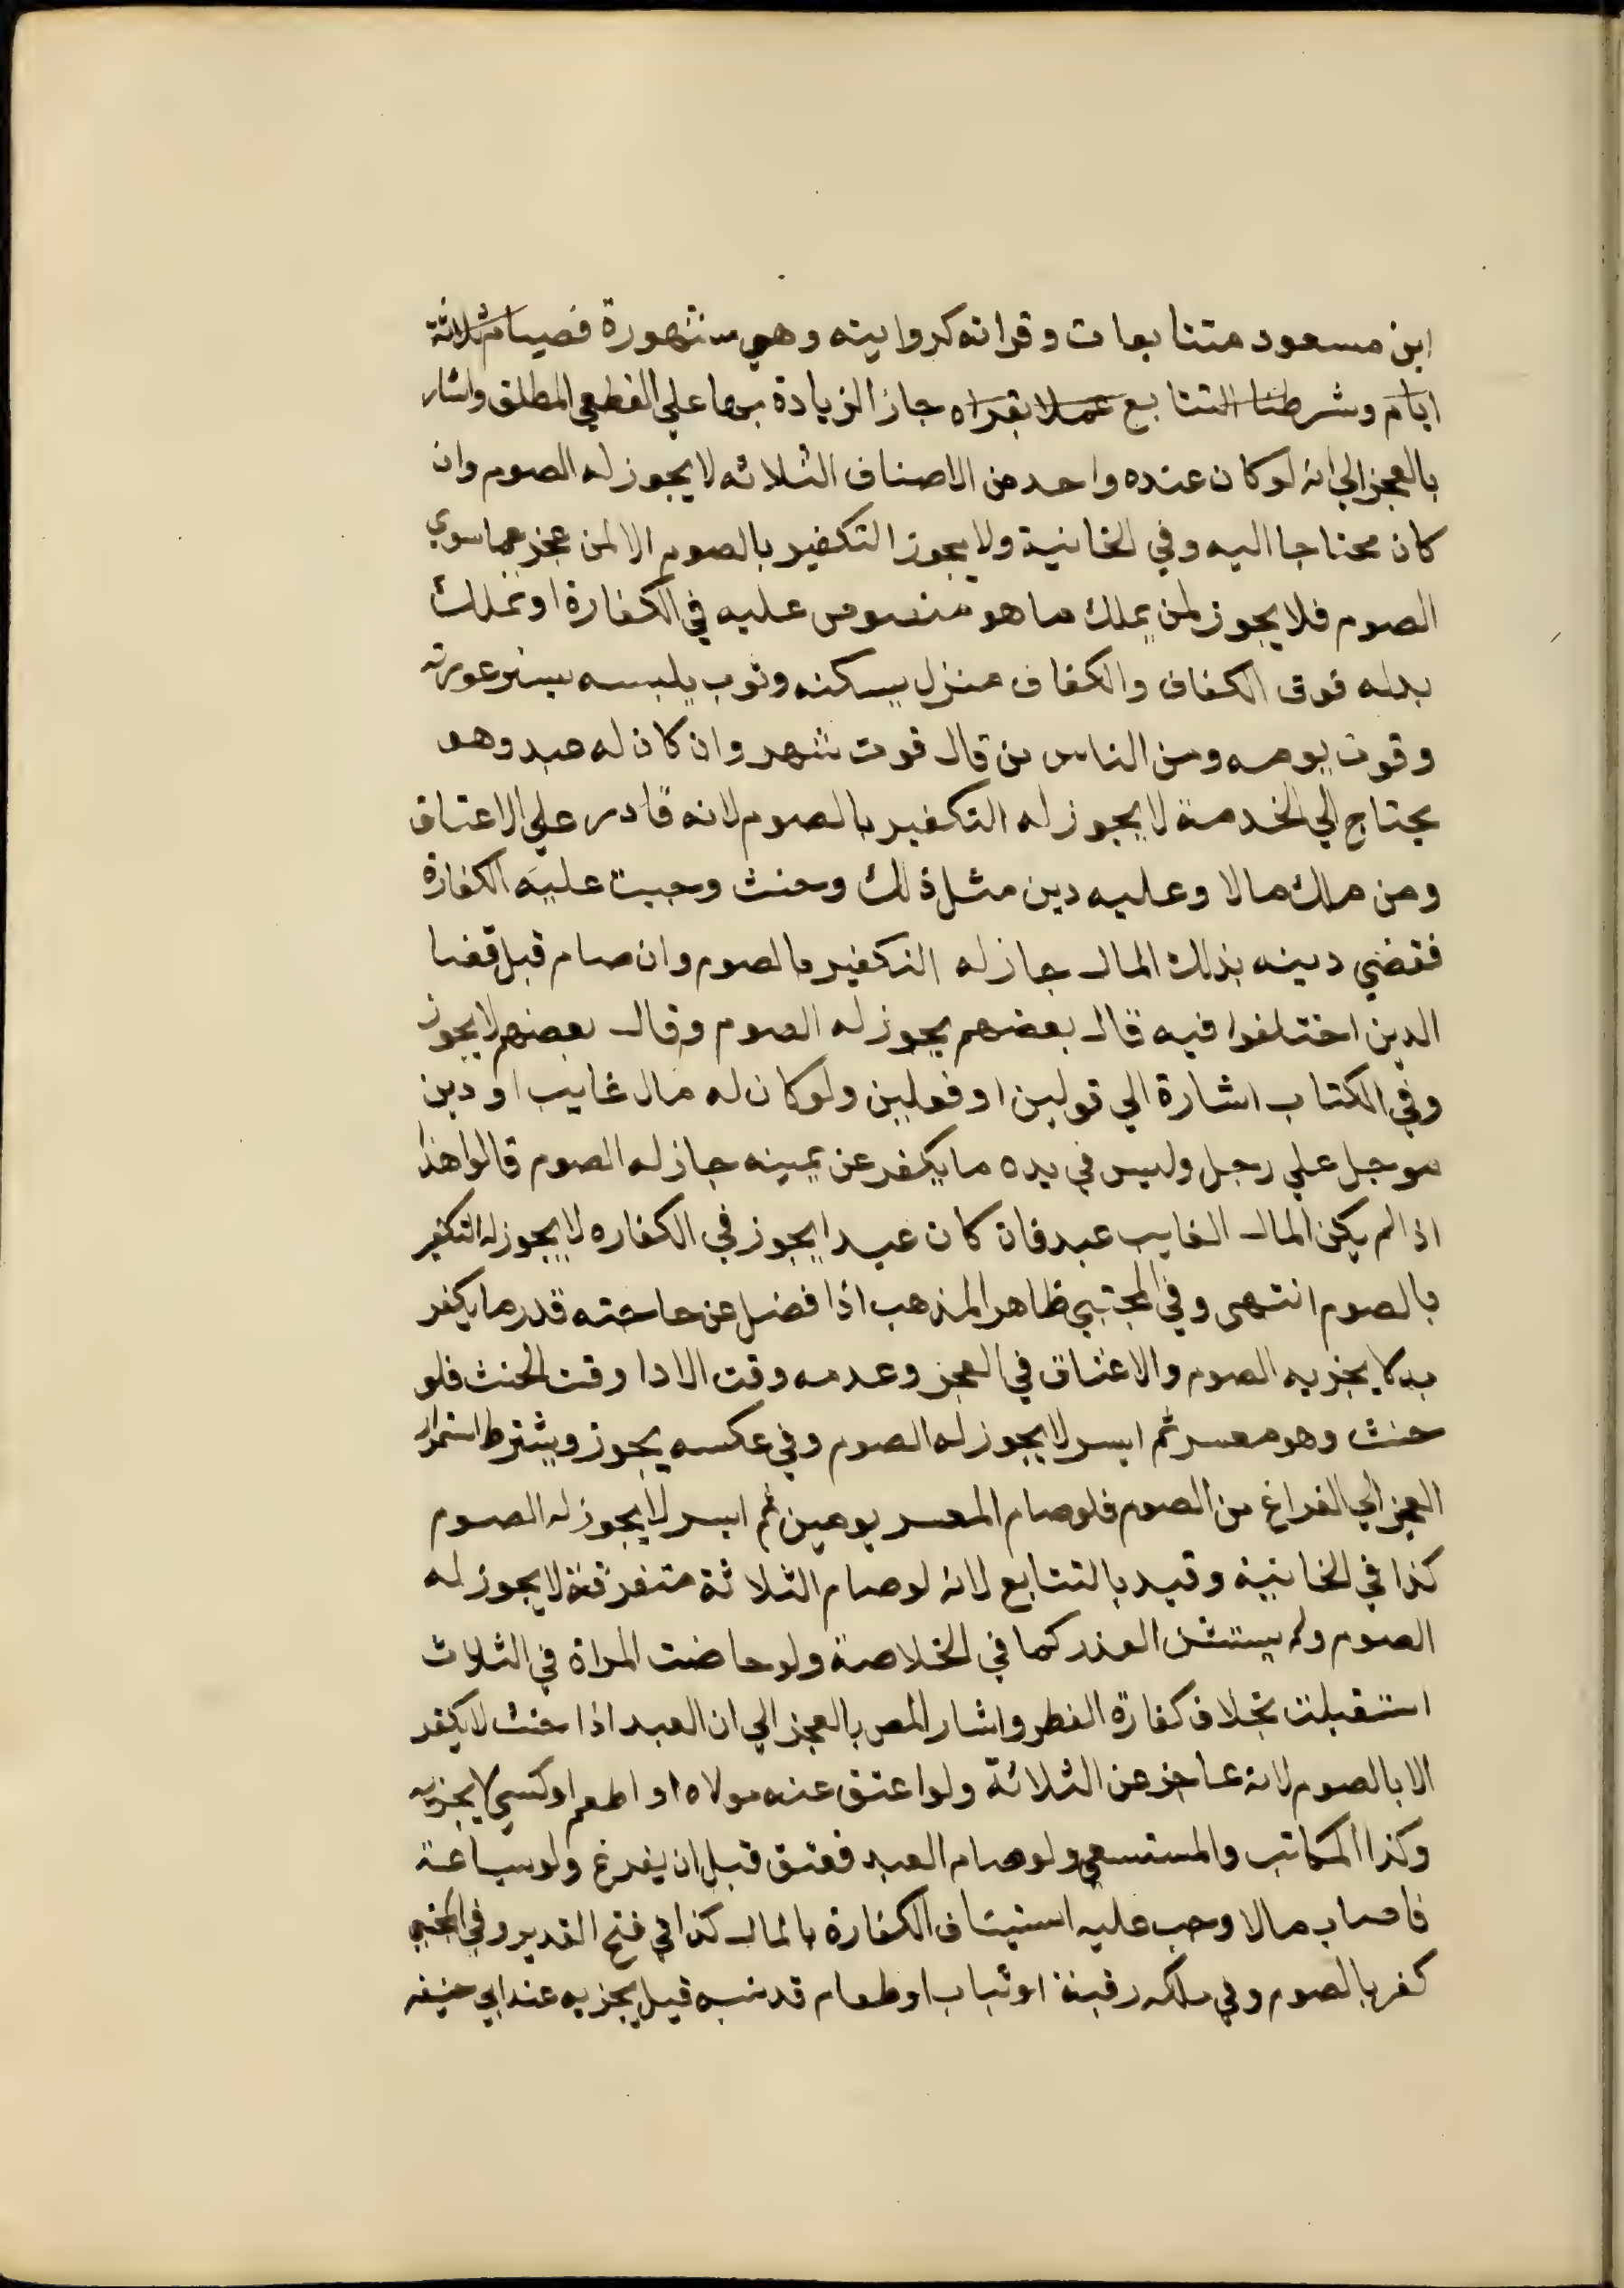 ابن مسعود متتابعات وقراته كروايته وهي مشهورة فصيام ثلاثة
ايام وشرطنا التتابع عملا بقراه جاز الزيادة بها علي القطعي المطلق واشار
بالعجز الي انه لو كان عنده واحد من الاصناف الثلاثه لا يجوز له الصوم وان
كان محتاجا اليه وفي الخانية ولا يجوز التكفير بالصوم الا لمن عجز عما سوي
الصوم فلا يجوز لمن يملك ما هو منصوص عليه في الكفارة او تملك
بدله فوق الكفاف والكفاف منزل يسكنه وثوب يلبسه يستر عورته
وقوت يومه ومن الناس من قال قوت شهر وان كان له عبد وهو
يحتاج الي الخدمة لا يجوز له التكفير بالصوم لانه قادر علي الاعتاق
ومن ملك مالا وعليه دين مثل ذلك وحنث وجبت عليه الكفارة
فقضي دينه بذلك المال جاز له التكفير بالصوم وان صام قبل قضا
الدين اختلفوا فيه قال بعضهم يجوز له الصوم وقال بعضهم لا يجوز
وفي الكتاب اشارة الي قولين او فعلين ولو كان له مال غايب او دين
موجل علي رجل وليس في يده ما يكفر عن يمينه جاز له الصوم قالوا هذا
اذا لم يكن المال الغايب عبد فان كان عبدا يجوز في الكفاره لا يجوز له التكفير
بالصوم انتهى وفي المجتبي ظاهر المذهب اذا فضل عن حاجته قدر ما يكفر
به لا يجزيه الصوم والاعتاق في العجز وعدمه وقت الادا وقت الحنث فلو
حنث وهو معسر ثم ايسر لا يجوز له الصوم وفي عكسه يجوز ويشترط استمرار
العجز الي الفراغ من الصوم فلو صام المعسر يومين ثم ايسر لا يجوز له الصوم
كذا في الخانية وقيد بالتتابع لانه لو صام الثلاثة متفرقة لا يجوز له
الصوم ولم يستثن العذر كما في الخلاصة ولو حاضت المراة في الثلاث
استقبلت بخلاف كفارة الفطر واشار المص بالعجز الي ان العبد اذا حنث لا يكفر
الا بالصوم لانه عاجز عن الثلاثة ولو اعتق عنه مولاه او اطعم او كسي لا يجزيه
وكذا المكاتب والمستسعي ولو صام العبد فعتق قبل ان يفرغ ولو بساعة
فاصاب مالا وجب عليه استيناف الكفارة بالمال كذا في فتح القدير وفي المجتبي
كفر بالصوم وفي ملكه رقبة او ثياب او طعام قد نسيه قيل يجزيه عند ابي حنيفه